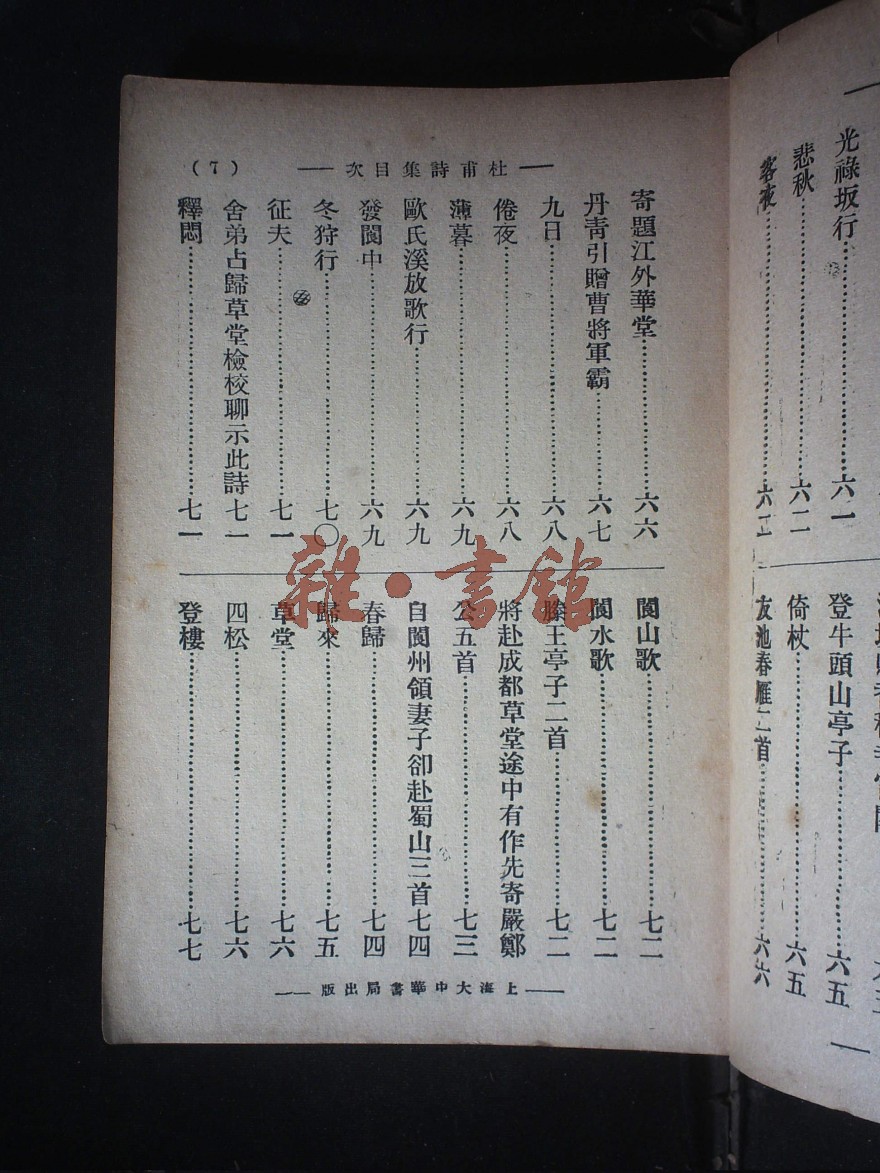 光祿坂行……六一
悲秋……六二
客夜……六二
登牛頭山亭子……六五
倚杖……六五
友池春雁二首……六六
(7)
—杜甫詩集目次—
寄題江外華堂……六六
丹青引贈曹將軍霸……六七
九日……六八
倦夜……六八
薄暮……六九
歐氏溪放歌行……六九
發閬中……六九
冬狩行……七〇
征夫……七一
舍弟占歸草堂檢校聊示此詩七一
釋悶……七一
閬山歌……七二
閬水歌……七二
滕王亭子二首……七二
將赴成都草堂途中有作先寄嚴鄭
公五首……七三
自閬州領妻子卻赴蜀山三首七四
春歸……七四
歸來……七五
草堂……七六
四松……七六
登樓……七七
—上海大中華書局出版—
雜·書館